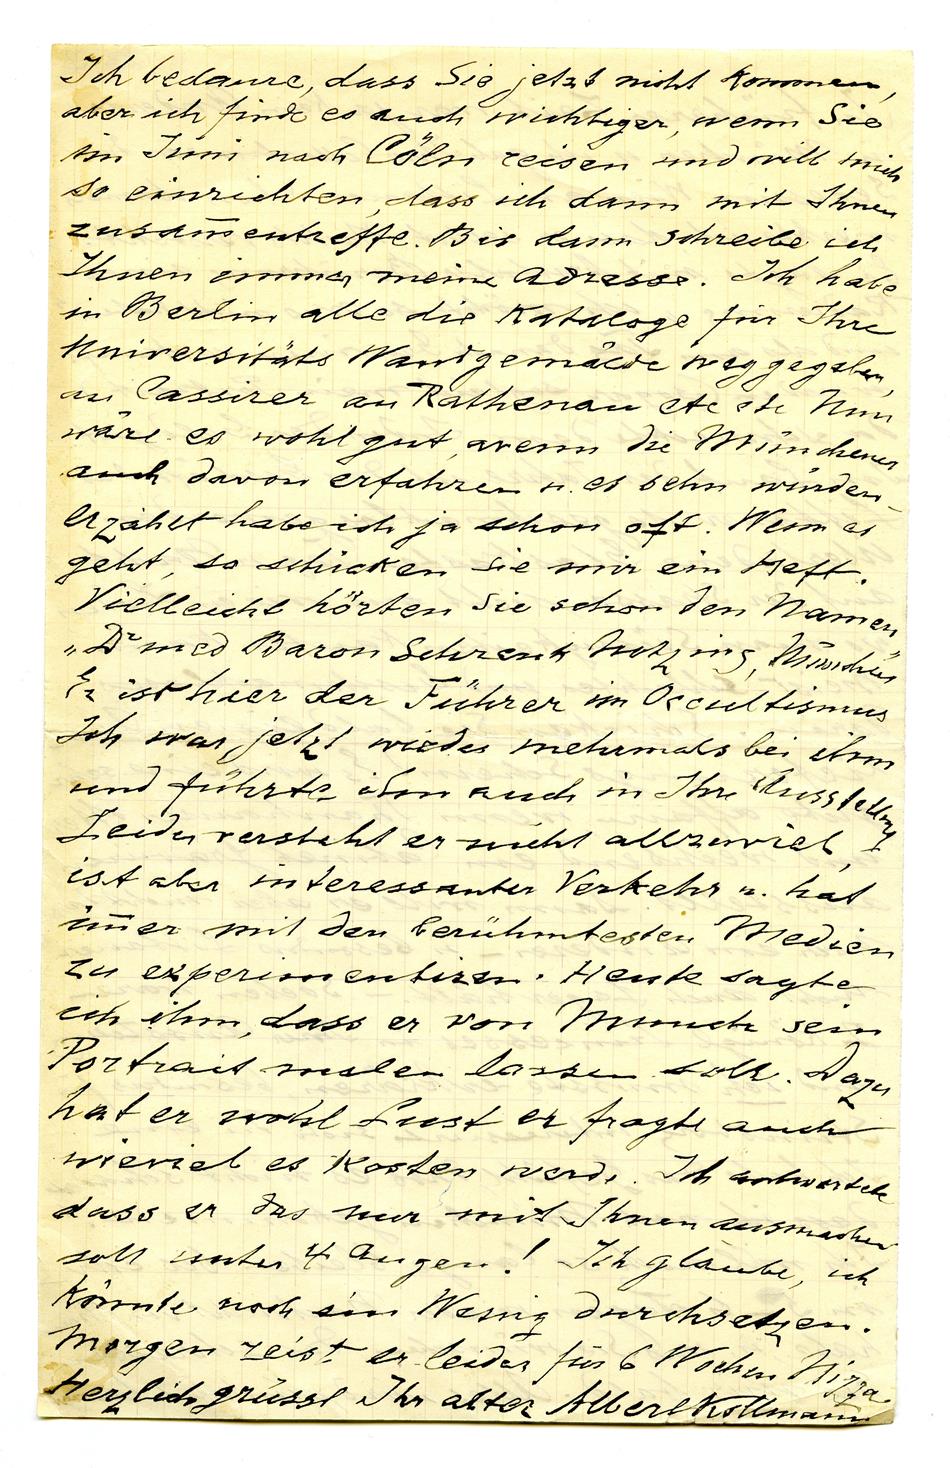 Ich bedaure, dass Sie jetzt nicht kommen,
aber ich finde es auch wichtiger, wenn Sie
im Juni nach Cöln reisen und will mich
so einrichten, dass ich dann mit Ihnen
zusam̅entreffe. Bis dann schreibe ich
Ihnen immer meine Adresse. Ich habe
in Berlin alle die Kataloge für Ihre
Universitäts Wandgemälde weggegeben,
an Cassirer an Rathenau etc etc Nun
wäre es wohl gut, wenn die Münchener
auch davon erfahren u. es sehn würden
erzählt habe ich ja schon oft. Wenn es
geht, so schicken Sie mir ein Heft.
Vielleicht hörten Sie schon den Namen
„Dr med Baron Schrenk Notzing, München"
Er ist hier der Führer im Occultismus
Ich war jetzt wieder mehrmals bei ihm
und führte ihn auch in Ihre Ausstellung
Leider versteht er nicht allzuviel,
ist aber interessanter Verkehr u. hat
im̅er mit den berühmtesten Medien
zu experimentiren. Heute sagte
ich ihm, dass er von Munch sein
Portrait malen lassen soll. Dazu
hat er wohl Lust er fragte auch
wieviel es kosten werde. Ich antwortete
dass er das nur mit Ihnen ausmachen
soll unter 4 Augen! Ich glaube, ich
könnte noch ein Wenig durchsetzen.
Morgen reist er leider für 6 Wochen Nizza.
Herzlich grüsst Ihr alter Albert Kollmann